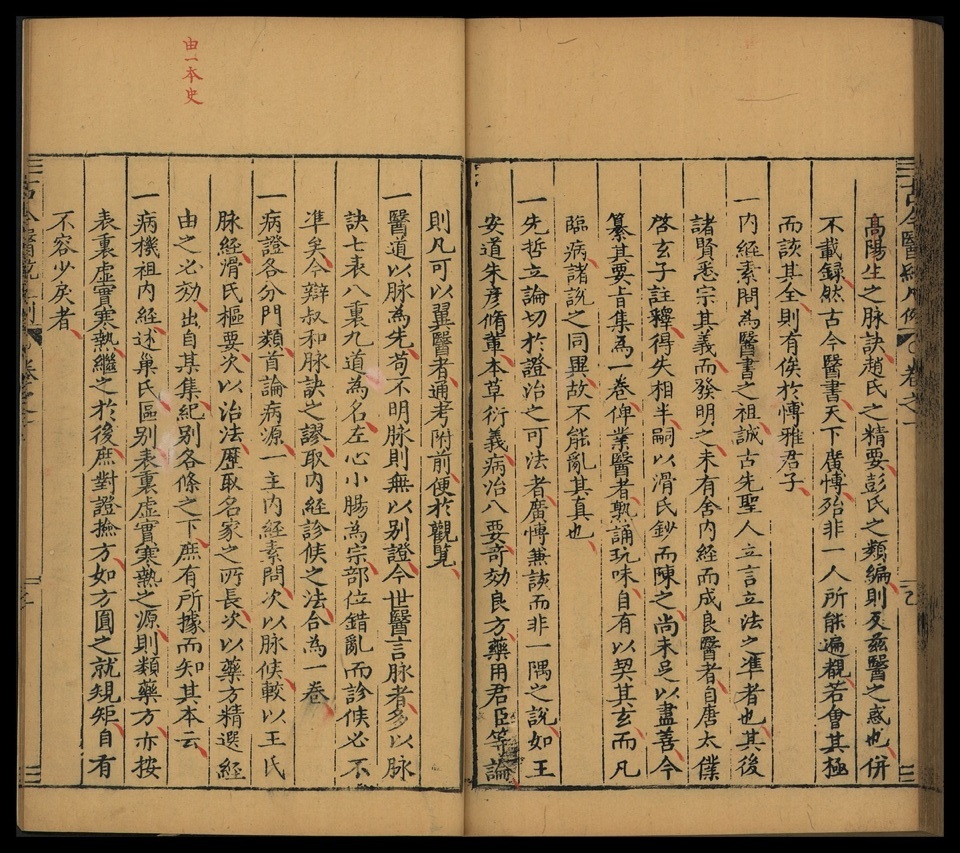 高陽生之脉訣趙氏之精要彭氏之類編則反茲醫之惑也併
不載録然古今醫書天下廣愽殆非一人所能遍覩若會其極
而該其全則有俟於愽雅君子
一内經素問為醫書之祖誠古先聖人立言立法之凖者也其後
諸賢悉宗其義而發明之未有舍内經而成良醫者自唐太僕
啓玄子註釋得失相半嗣以滑氏鈔而陳之尚未足以盡善今
纂其要旨集為一卷俾業醫者熟誦玩味自有以契其玄而凡
臨病諸說之同異故不能亂其真也
一先哲立論切於證治之可法者廣愽兼該而非一隅之說如王
安道朱彦脩軰本草衍義病治八要竒効良方藥用君臣等論
則凡可以翼醫者通考附前便於觀覧
一醫道以脉為先苟不明脉則無以别證今世醫言脉者多以脉
訣七表八裏九道為名左心小腸為宗部位錯亂而診候必不
凖矣今辯叔和脉訣之謬取内經診候之法合為一卷
一病證各分門類首論病源一主内經素問次以脉候較以王氏
脉經滑氏樞要次以治法歷取名家之所長次以藥方精選經
由之必効出自某集紀别各條之下庶有所據而知其本云
一病機祖内經述巢氏區别表裏虛實寒熱之源則類藥方亦按
表裏虛實寒熱繼之於後庶對證撿方如方圓之就規矩自有
不容少戾者
由一本史